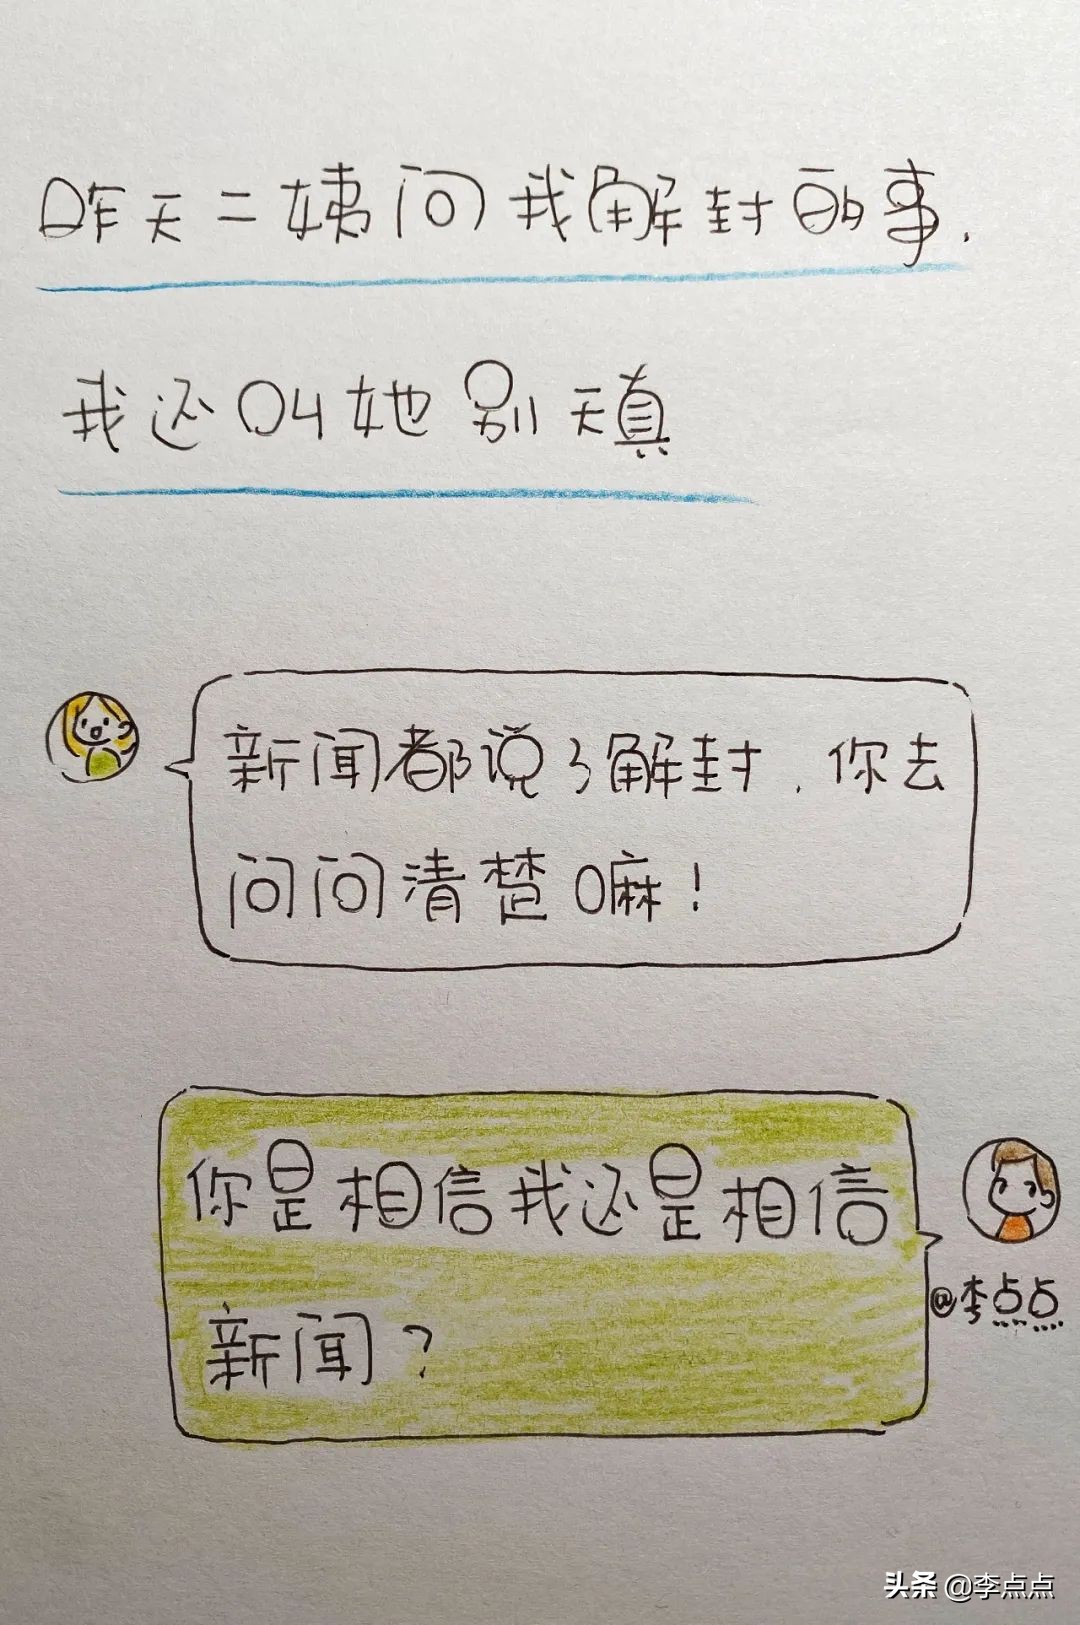 昨天二姨问我解封的事.
我还叫她别天真
新闻都说了解封.你去
问问清楚嘛!
你是相信我还是相信
新闻?
@李点点
头条 @李点点